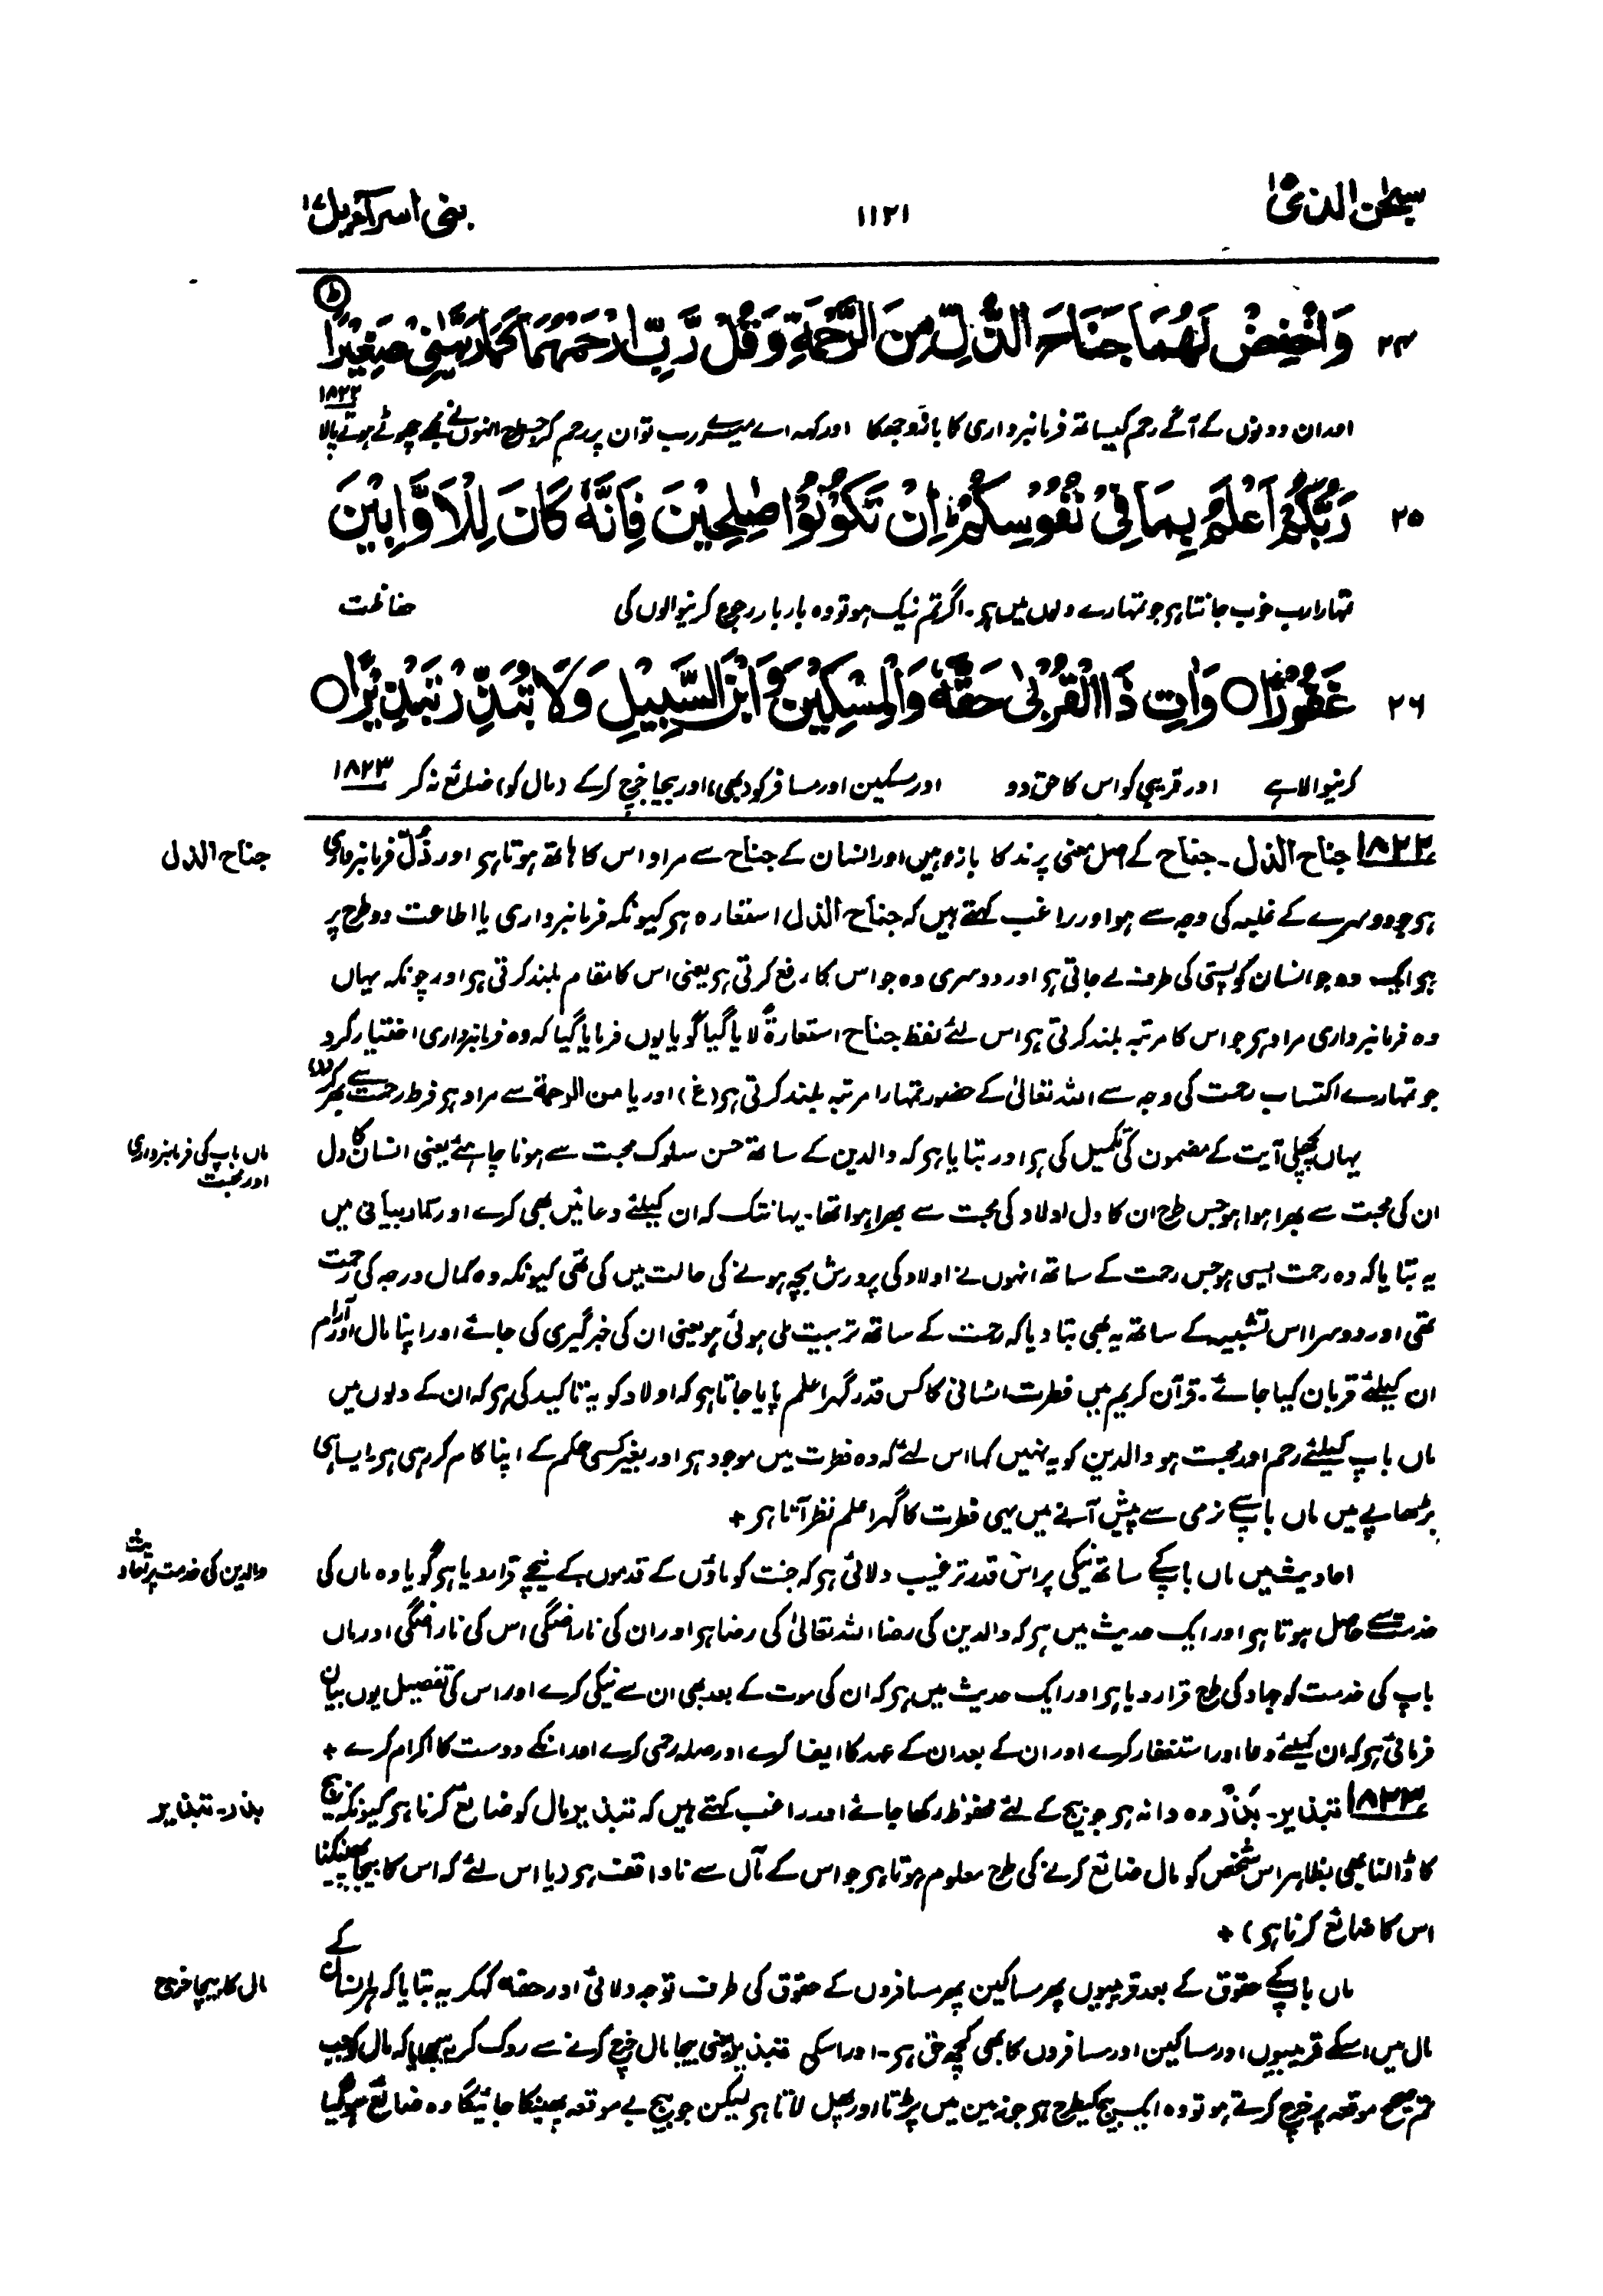 سبحٰن الذی ۱۵
۱۱۲۱
بنی اسرآءیل ۱۷
۲۴ وَاخْفِضْ لَهُمَا جَنَاحَ الذُّلِّ مِنَ الرَّحْمَةِ وَقُلْ رَّبِّ ارْحَمْهُمَا كَمَا رَبَّيٰنِيْ صَغِيْرًا ط
اور ان دونوں کے آگے رحم کیساتھ فرمانبرداری کا بازو جھکا اور کہہ اے میرے رب تو ان پر رحم کر جسطرح انہوں نے مجھے چھوٹے ہوتے پالا ۱۸۲۲
۲۵ رَبُّكُمْ اَعْلَمُ بِمَا فِيْ نُفُوْسِكُمْ ط اِنْ تَكُوْنُوْا صٰلِحِيْنَ فَاِنَّهٗ كَانَ لِلْاَوَّابِيْنَ
تمہارا رب خوب جانتا ہی جو تمہارے دلوں میں ہی۔ اگر تم نیک ہو تو وہ بار بار رجوع کرنیوالوں کی حفاظت
۲۶ غَفُوْرًا ○ وَاٰتِ ذَا الْقُرْبٰى حَقَّهٗ وَالْمِسْكِيْنَ وَابْنَ السَّبِيْلِ وَلَا تُبَذِّرْ تَبْذِيْرًا ○
کرنیوالا ہے اور قریبی کو اس کا حق دو اور مسکین اور مسافر کو (بھی) اور بیجا خرچ کرکے (مال کو) ضائع نہ کر ۱۸۲۳
۱۸۲۲ جناح الذل۔ جناح کے اصل معنی پرند کا بازو ہیں اور انسان کے جناح سے مراد اس کا ہاتھ ہوتا ہی اور ذُلّ فرمانبرداری
جناح الذل
ہی جو دوسرے کے غلبہ کی وجہ سے ہو اور راغب کہتے ہیں کہ جناح الذل استعارہ ہی کیونکہ فرمانبرداری یا اطاعت دو طرح پر
ہی ایک وہ جو انسان کو پستی کی طرف لے جاتی ہی اور دوسری وہ جو اس کا رفع کرتی ہی یعنی اس کا مقام بلند کرتی ہی اور چونکہ یہاں
وہ فرمانبرداری مراد ہی جو اس کا مرتبہ بلند کرتی ہی اس لئے لفظ جناح استعارۃً لایا گیا گویا یوں فرمایا گیا کہ وہ فرمانبرداری اختیار کرو
جو تمہارے اکتساب رحمت کی وجہ سے اللہ تعالیٰ کے حضور تمہارا مرتبہ بلند کرتی ہی (غ) اور یا من الرحمة سے مراد ہی فرط رحمت سے بھر کر
یہاں پچھلی آیت کے مضمون کی تکمیل کی ہی اور بتایا ہی کہ والدین کے ساتھ حسن سلوک محبت سے ہونا چاہئے یعنی انسان کا دل
ماں باپ کی فرمانبرداری
اور محبت
ان کی محبت سے بھرا ہوا ہو جس طرح ان کا دل اولاد کی محبت سے بھرا ہوا تھا۔ یہانتک کہ ان کیلئے دعائیں بھی کرے اور کما ربیانی میں
یہ بتایا کہ وہ رحمت ایسی ہو جس رحمت کے ساتھ انہوں نے اولاد کی پرورش بچہ ہونے کی حالت میں کی تھی کیونکہ وہ کمال درجہ کی رحمت
تھی اور دوسرا اس تشبیہ کے ساتھ یہ بھی بتا دیا کہ رحمت کے ساتھ تربیت ملی ہوئی ہو یعنی ان کی خبرگیری کی جائے اور اپنا مال اور آرام
ان کیلئے قربان کیا جائے۔ قرآن کریم میں فطرت انسانی کا کس قدر گہرا علم پایا جاتا ہی کہ اولاد کو یہ تاکید کی ہی کہ ان کے دلوں میں
ماں باپ کیلئے رحم اور محبت ہو والدین کو یہ نہیں کہا اس لئے کہ وہ فطرت میں موجود ہی اور بغیر کسی حکم کے اپنا کام کر رہی ہی۔ ایسا ہی
بڑھاپے میں ماں باپ سے نرمی سے پیش آنے میں یہی فطرت کا گہرا علم نظر آتا ہی +
احادیث میں ماں باپ کے ساتھ نیکی پر اس قدر ترغیب دلائی ہی کہ جنت کو ماؤں کے قدموں کے نیچے قرار دیا ہی گویا وہ ماں کی
والدین کی خدمت پر احادیث
خدمت سے حاصل ہوتا ہی اور ایک حدیث میں ہی کہ والدین کی رضا اللہ تعالیٰ کی رضا ہی اور ان کی ناراضگی اس کی ناراضگی اور ماں
باپ کی خدمت کو جہاد کی طرح قرار دیا ہی اور ایک حدیث میں ہی کہ ان کی موت کے بعد بھی ان سے نیکی کرے اور اس کی تفصیل یوں بیان
فرمائی ہی کہ ان کیلئے دعا اور استغفار کرے اور ان کے بعد ان کے عہد کا ایفا کرے اور صلہ رحمی کرے اور انکے دوست کا اکرام کرے +
۱۸۲۳ تبذیر۔ بَذْر وہ دانہ ہی جو بیج کے لئے محفوظ رکھا جائے اور راغب کہتے ہیں کہ تبذیر مال کو ضائع کرنا ہی کیونکہ بیج
بذر۔ تبذیر
کا ڈالنا بھی بظاہر اس شخص کو مال ضائع کرنے کی طرح معلوم ہوتا ہی جو اس کے مآل سے ناواقف ہی (یا اس لئے کہ اس کا بیجا پھینکنا
اس کا ضائع کرنا ہی) +
ماں باپ کے حقوق کے بعد قریبیوں پھر مساکین پھر مسافروں کے حقوق کی طرف توجہ دلائی اور حقه کہکر یہ بتایا کہ ہر انسان کے
مال کا بیجا خرچ
مال میں اسکے قریبیوں اور مساکین اور مسافروں کا بھی کچھ حق ہی۔ اور اسکی تبذیر یعنی بیجا مال خرچ کرنے سے روک کر یہ سمجھایا کہ مال کو جب
تم صحیح موقعہ پر خرچ کرتے ہو تو وہ ایک بیج کیطرح ہی جو زمین میں پڑتا اور پھل لاتا ہی لیکن جو بیج بے موقعہ پھینکا جائیگا وہ ضائع ہو گیا